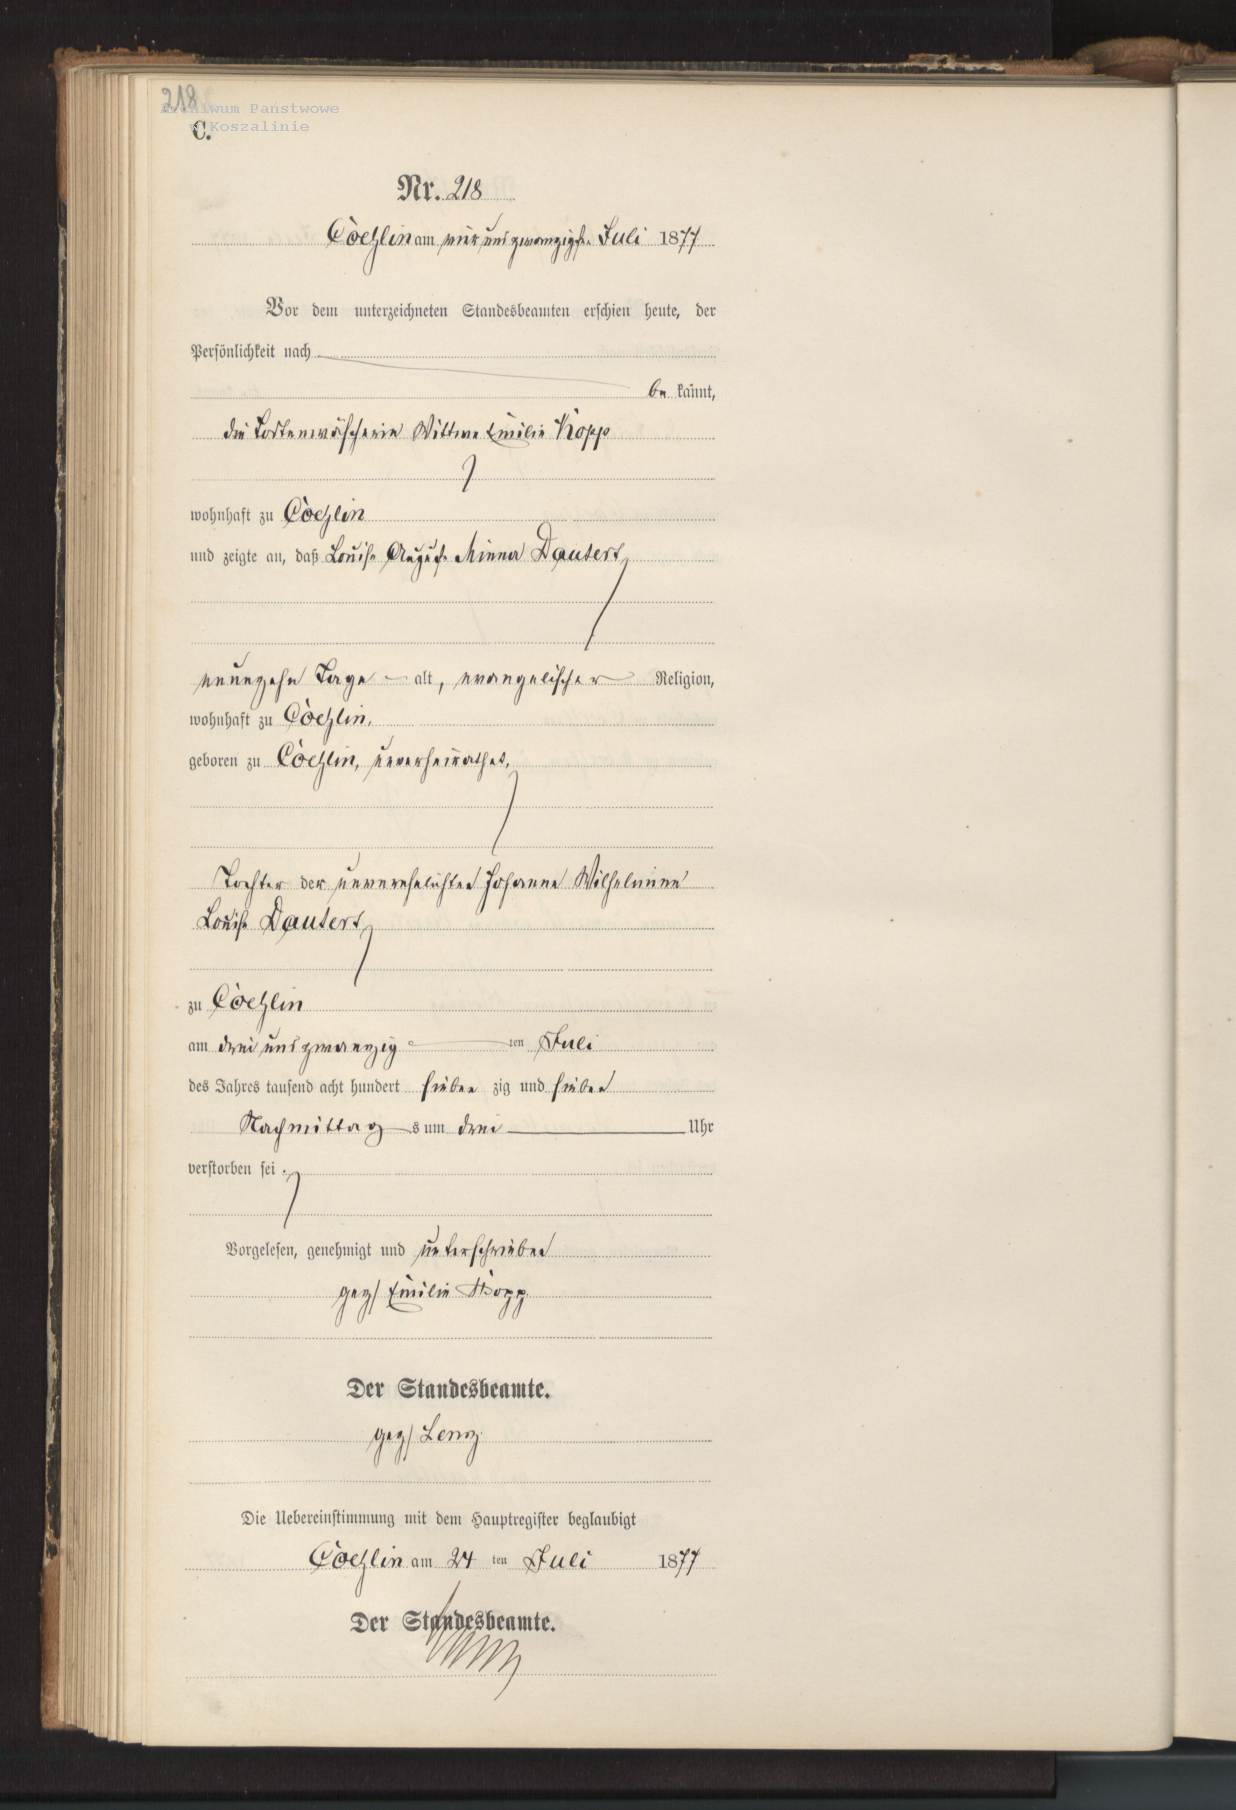 218
Archiwum Państwowe
w Koszalinie
C.
Nr. 218
Cöszlin am vier und zwanzigsten Juli 1877
Vor dem unterzeichneten Standesbeamten erschien heute, der
Persönlichkeit nach
be kannt,
die Todtenwäscherin Wittwe Emilie Kopp
wohnhaft zu Cöszlin
und zeigte an, daß Louise Auguste Minna Dautert
neunzehn Tage alt, evangelischer Religion,
wohnhaft zu Cöszlin,
geboren zu Cöszlin, unverheirathet,
Tochter der unverehelichten Johanne Wilhelmine
Louise Dautert
zu Cöszlin
am drei und zwanzig ten Juli
des Jahres tausend acht hundert sieben zig und sieben
Nachmittag s um drei Uhr
verstorben sei.
Vorgelesen, genehmigt und unterschrieben
gez/ Emilie Kopp.
Der Standesbeamte.
gez/ Lenz.
Die Uebereinstimmung mit dem Hauptregister beglaubigt
Cöszlin am 24 ten Juli 1877
Der Standesbeamte.
Lenz